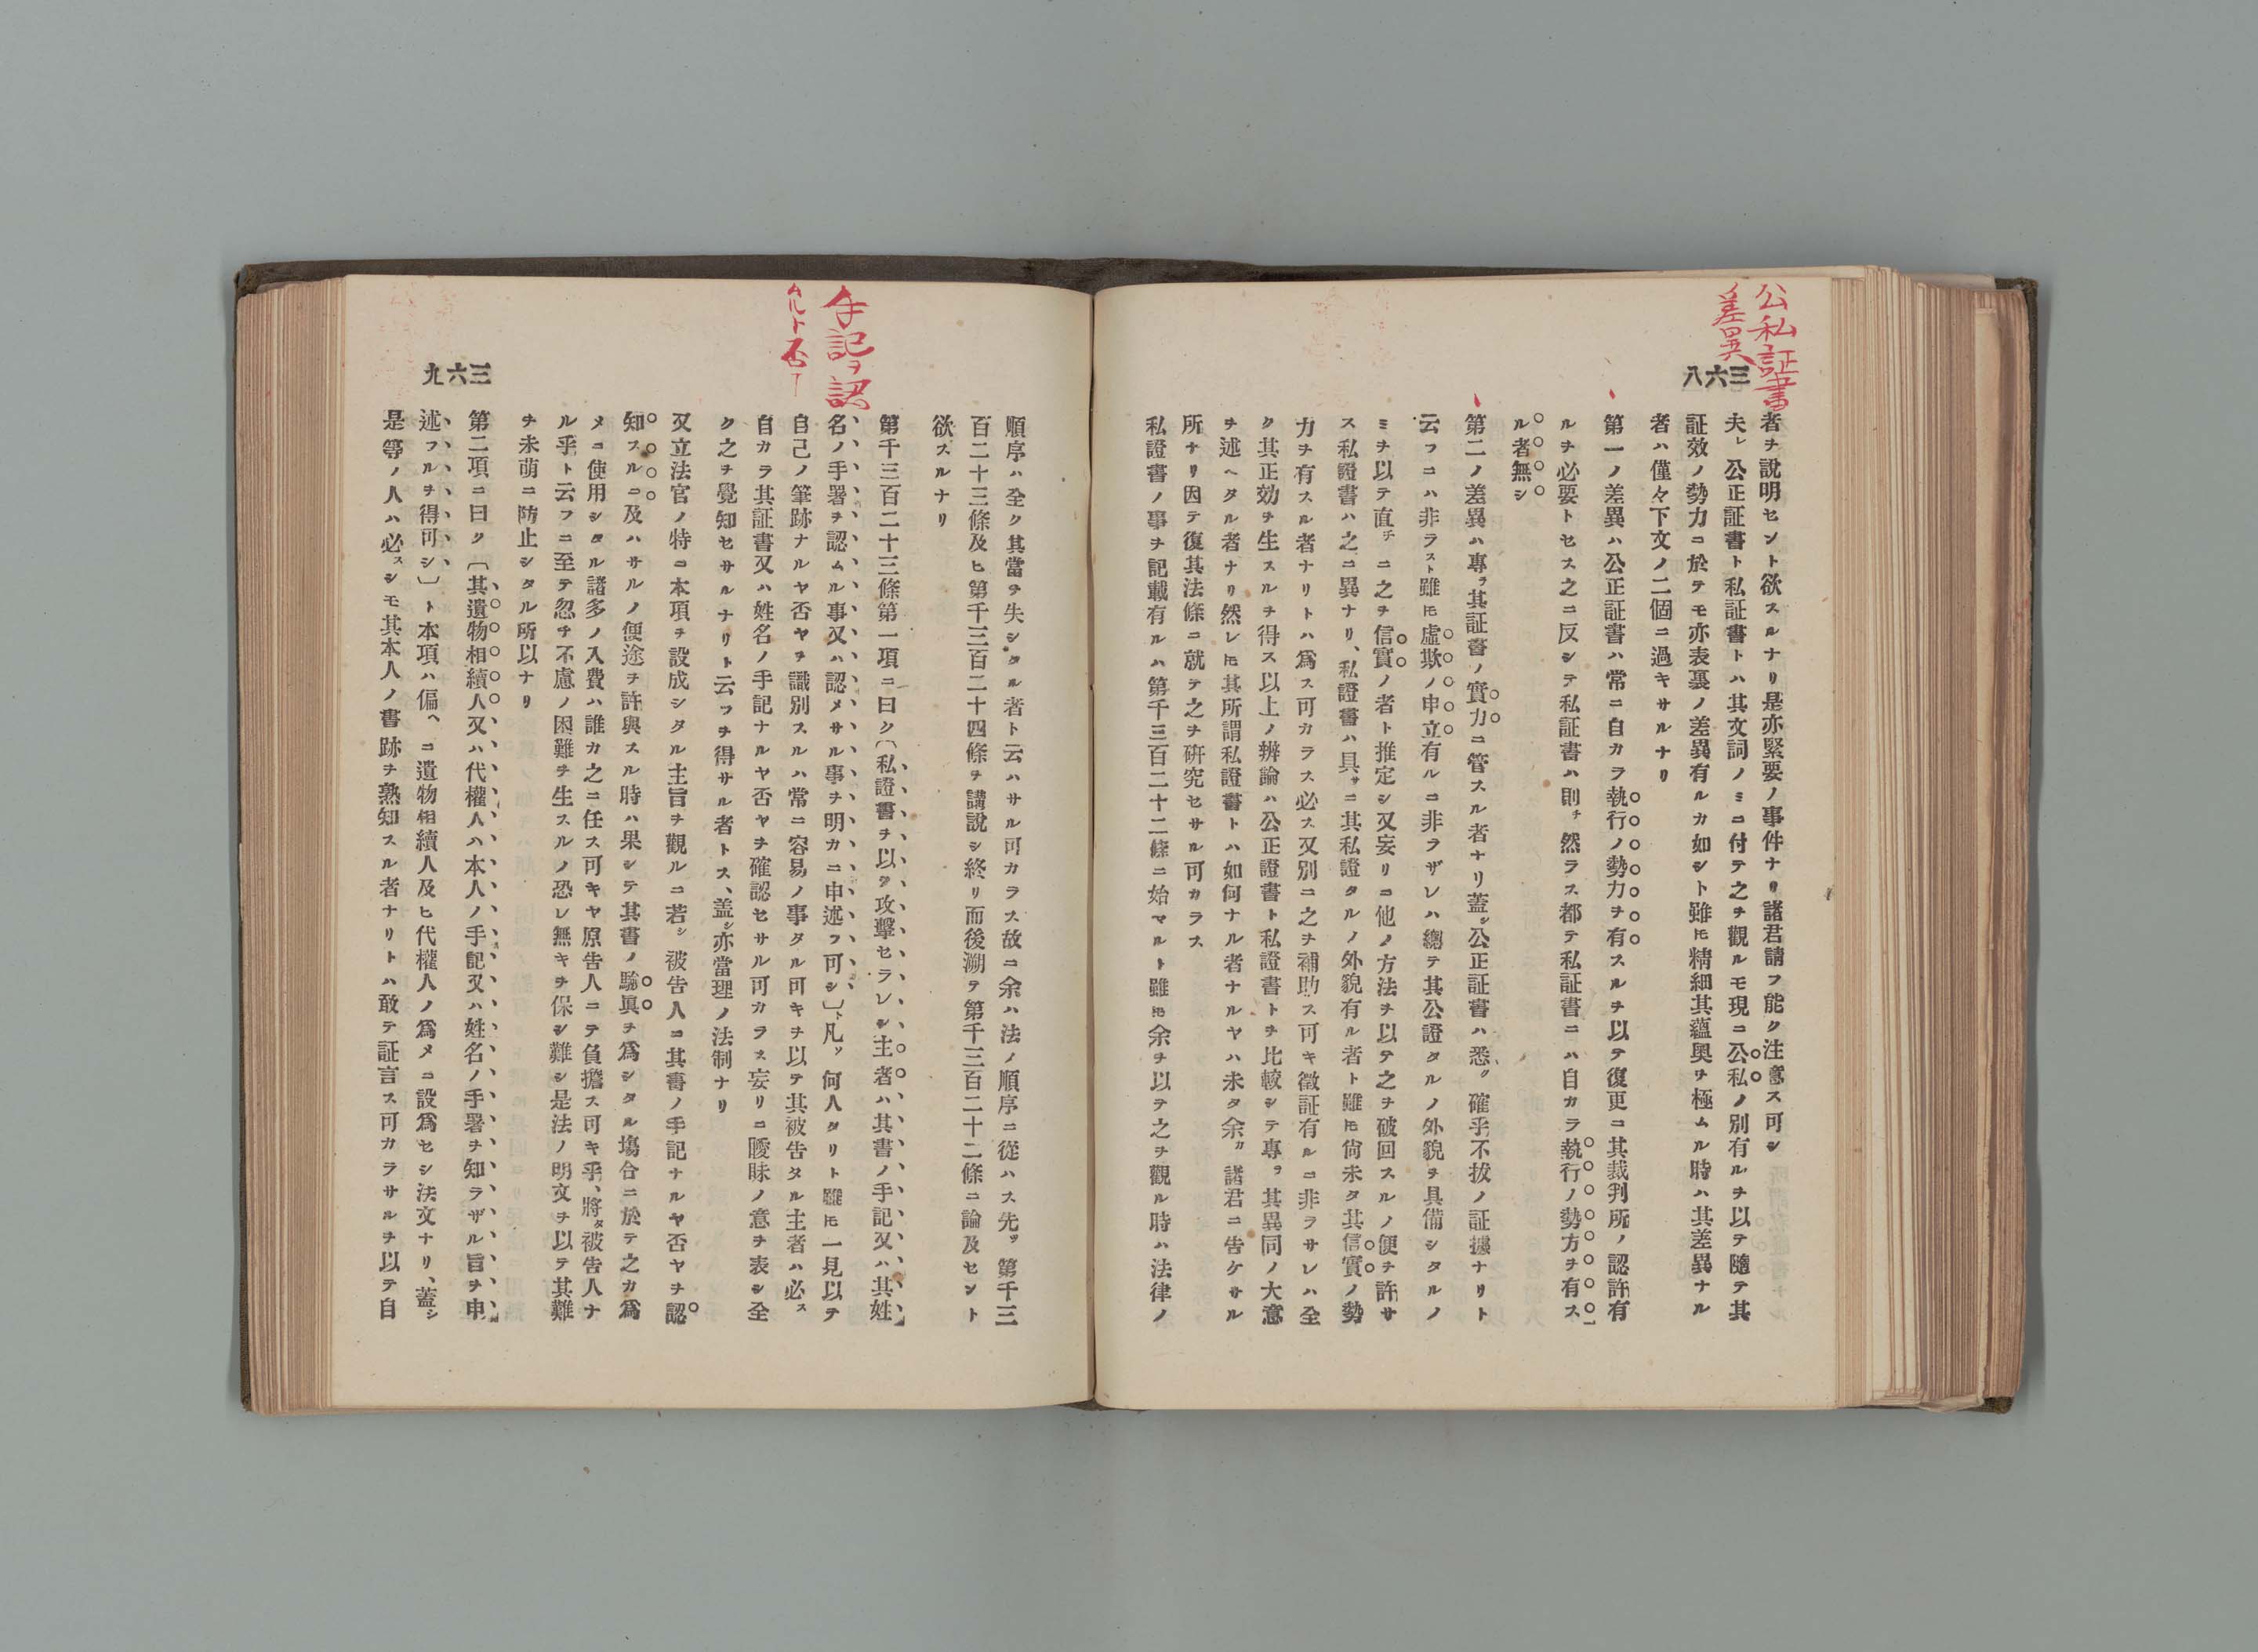 公私証書
差異
三六八
者ヲ說明セント欲スルナリ是亦緊要ノ事件ナリ諸君請フ能ク注意ス可シ
夫レ公正証書ト私証書トハ其文詞ノミニ付テ之ヲ觀ルモ現ニ公私ノ別有ルヲ以テ隨テ其
証效ノ勢力ニ於テモ亦表裏ノ差異有ルカ如シト雖モ精細其蘊奧ヲ極ムル時ハ其差異ナル
者ハ僅々下文ノ二個ニ過キサルナリ
第一ノ差異ハ公正証書ハ常ニ自カラ執行ノ勢力ヲ有スルヲ以テ復更ニ其裁判所ノ認許有
ルヲ必要トセス之ニ反シテ私証書ハ則チ然ラス都テ私証書ニハ自カラ執行ノ勢力ヲ有ス
ル者無シ
第二ノ差異ハ專ラ其証書ノ實力ニ管スル者ナリ蓋シ公正証書ハ悉ク確乎不拔ノ証據ナリト
云フニハ非ラスト雖モ虛欺ノ申立有ルニ非ラザレハ總テ其公證タルノ外貌ヲ具備シタルノ
ミヲ以テ直チニ之ヲ信實ノ者ト推定シ又妄リニ他ノ方法ヲ以テ之ヲ破回スルノ便ヲ許サ
ス私證書ハ之ニ異ナリ、私證書ハ具サニ其私證タルノ外貌有ル者ト雖モ尙未タ其信實ノ勢
力ヲ有スル者ナリトハ爲ス可カラス必ス又別ニ之ヲ補助ス可キ徵証有ルニ非ラサレハ全
ク其正効ヲ生スルヲ得ス以上ノ辨論ハ公正證書ト私證書トヲ比較シテ專ラ其異同ノ大意
ヲ述ヘタル者ナリ然レモ其所謂私證書トハ如何ナル者ナルヤハ未タ余カ諸君ニ告ケサル
所ナリ因テ復其法條ニ就テ之ヲ硏究セサル可カラス
私證書ノ事ヲ記載有ルハ第千三百二十二條ニ始マルト雖モ余ヲ以テ之ヲ觀ル時ハ法律ノ
手記ヲ認
ムルト否
三六九
順序ハ全ク其當ヲ失シタル者ト云ハサル可カラス故ニ余ハ法ノ順序ニ從ハス先ッ第千三
百二十三條及ヒ第千三百二十四條ヲ講說シ終リ而後溯テ第千三百二十二條ニ論及セント
欲スルナリ
第千三百二十三條第一項ニ曰ク〔私證書ヲ以テ攻擊セラレシ主者ハ其書ノ手記又ハ其姓
名ノ手署ヲ認ムル事又ハ認メサル事ヲ明カニ申述フ可シ〕ト凡ソ何人タリト雖モ一見以テ
自己ノ筆跡ナルヤ否ヤヲ識別スルハ常ニ容易ノ事タル可キヲ以テ其被告タル主者ハ必ス
自カラ其証書又ハ姓名ノ手記ナルヤ否ヤヲ確認セサル可カラス妄リニ曖昧ノ意ヲ表シ全
ク之ヲ覺知セサルナリト云フヲ得サル者トス、蓋シ亦當理ノ法制ナリ
又立法官ノ特ニ本項ヲ設成シタル主旨ヲ觀ルニ若シ被告人ニ其書ノ手記ナルヤ否ヤヲ認
知スルニ及ハサルノ便途ヲ許與スル時ハ果シテ其書ノ驗眞ヲ爲シタル塲合ニ於テ之カ爲
メニ使用シタル諸多ノ入費ハ誰カ之ニ任ス可キヤ原告人ニテ負擔ス可キ乎、將タ被告人ナ
ル乎ト云フニ至テ忽チ不慮ノ困難ヲ生スルノ恐レ無キヲ保シ難シ是法ノ明文ヲ以テ其難
ヲ未萌ニ防止シタル所以ナリ
第二項ニ曰ク〔其遺物相續人又ハ代權人ハ本人ノ手記又ハ姓名ノ手署ヲ知ラザル旨ヲ申
述フルヲ得可シ〕ト本項ハ偏ヘニ遺物相續人及ヒ代權人ノ爲メニ設爲セシ法文ナリ、蓋シ
是等ノ人ハ必スシモ其本人ノ書跡ヲ熟知スル者ナリトハ敢テ証言ス可カラサルヲ以テ自